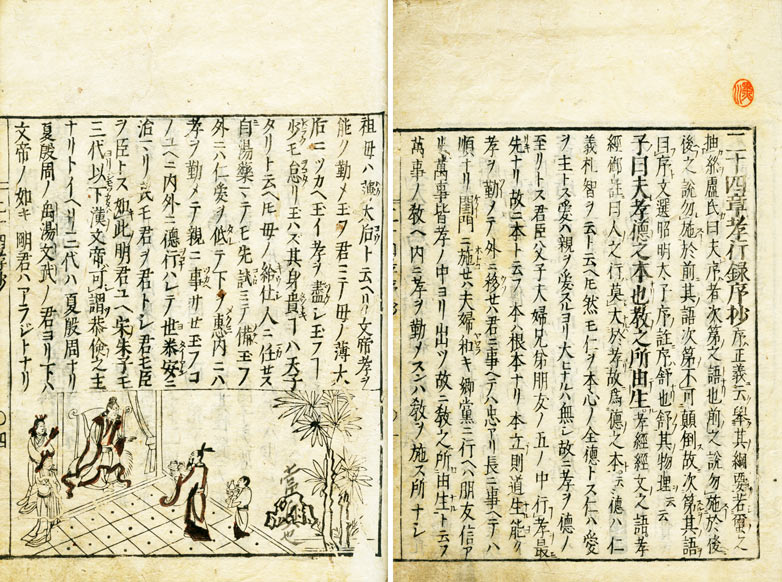 二十四章孝行録序抄 序正義云擧其綱要若繭之
抽緒盧氏曰夫序者次第之語也前之說勿施於後
後之說勿施於前其語次第不可顛倒故次第其語
曰序文選昭明太子序註序舒也舒其物理云云
子曰夫孝德之本也教之所由生 孝經經文之語孝
經御註曰人之行莫大於孝故爲德之本云云德ハ仁
義礼智ヲ云ト云ヘ𪜈然モ仁ヲ本心ノ全德トス仁ハ愛
ヲ主トス愛ハ親ヲ愛スルヨリ大ヒナルハ無シ故ニ孝ヲ德ノ
至リトス君臣父子夫婦兄弟朋友ノ五ノ中行孝最
先ナリ故ニ本ト云フ本ハ根本ナリ本立則道生能ク
孝ヲ勤メテ外ニ移セハ君ニ事ヘテハ忠アリ長ニ事ヘテハ
順ナリ閨門ニ施セハ夫婦和キ鄉黨ニ行ヘハ朋友信ア
リ萬事皆孝ノ中ヨリ出ツ故ニ教之所由生ト云フ
萬事ノ教ヘ内ニ孝ヲ勤メスンハ教ヲ施ス所ナシ
祖母ハ薄太后ト云ヘリ文帝孝ヲ
能ク勤メ玉フ君ニテ母ノ薄大
后ニツカヘ玉イ孝ヲ盡シ玉フヿ
少モ怠リ玉ハス其身貴コハ天子
タリト云ヘ𪜈母ノ給仕人ニ任セス
自湯藥マテモ先試ミテ備玉フ
外ニハ仁愛ヲ低テ下ヲ惠内ニハ
孝ヲ勤メテ親ニ事サセ玉フコ
ノユヘニ内外ニ德行ハレテ世恭安ニ
治マリ民モ君ヲ君トシ君モ臣
ヲ臣トス如此明君ユヘ宋朱子モ
三代以下漢文帝可謂恭儉之主
ナリトイヘリ三代ハ夏殷周ナリ
夏殷周ノ禹湯文武ノ君ヨリ下ハ
文帝ノ如キ明君ハアラジトナリ